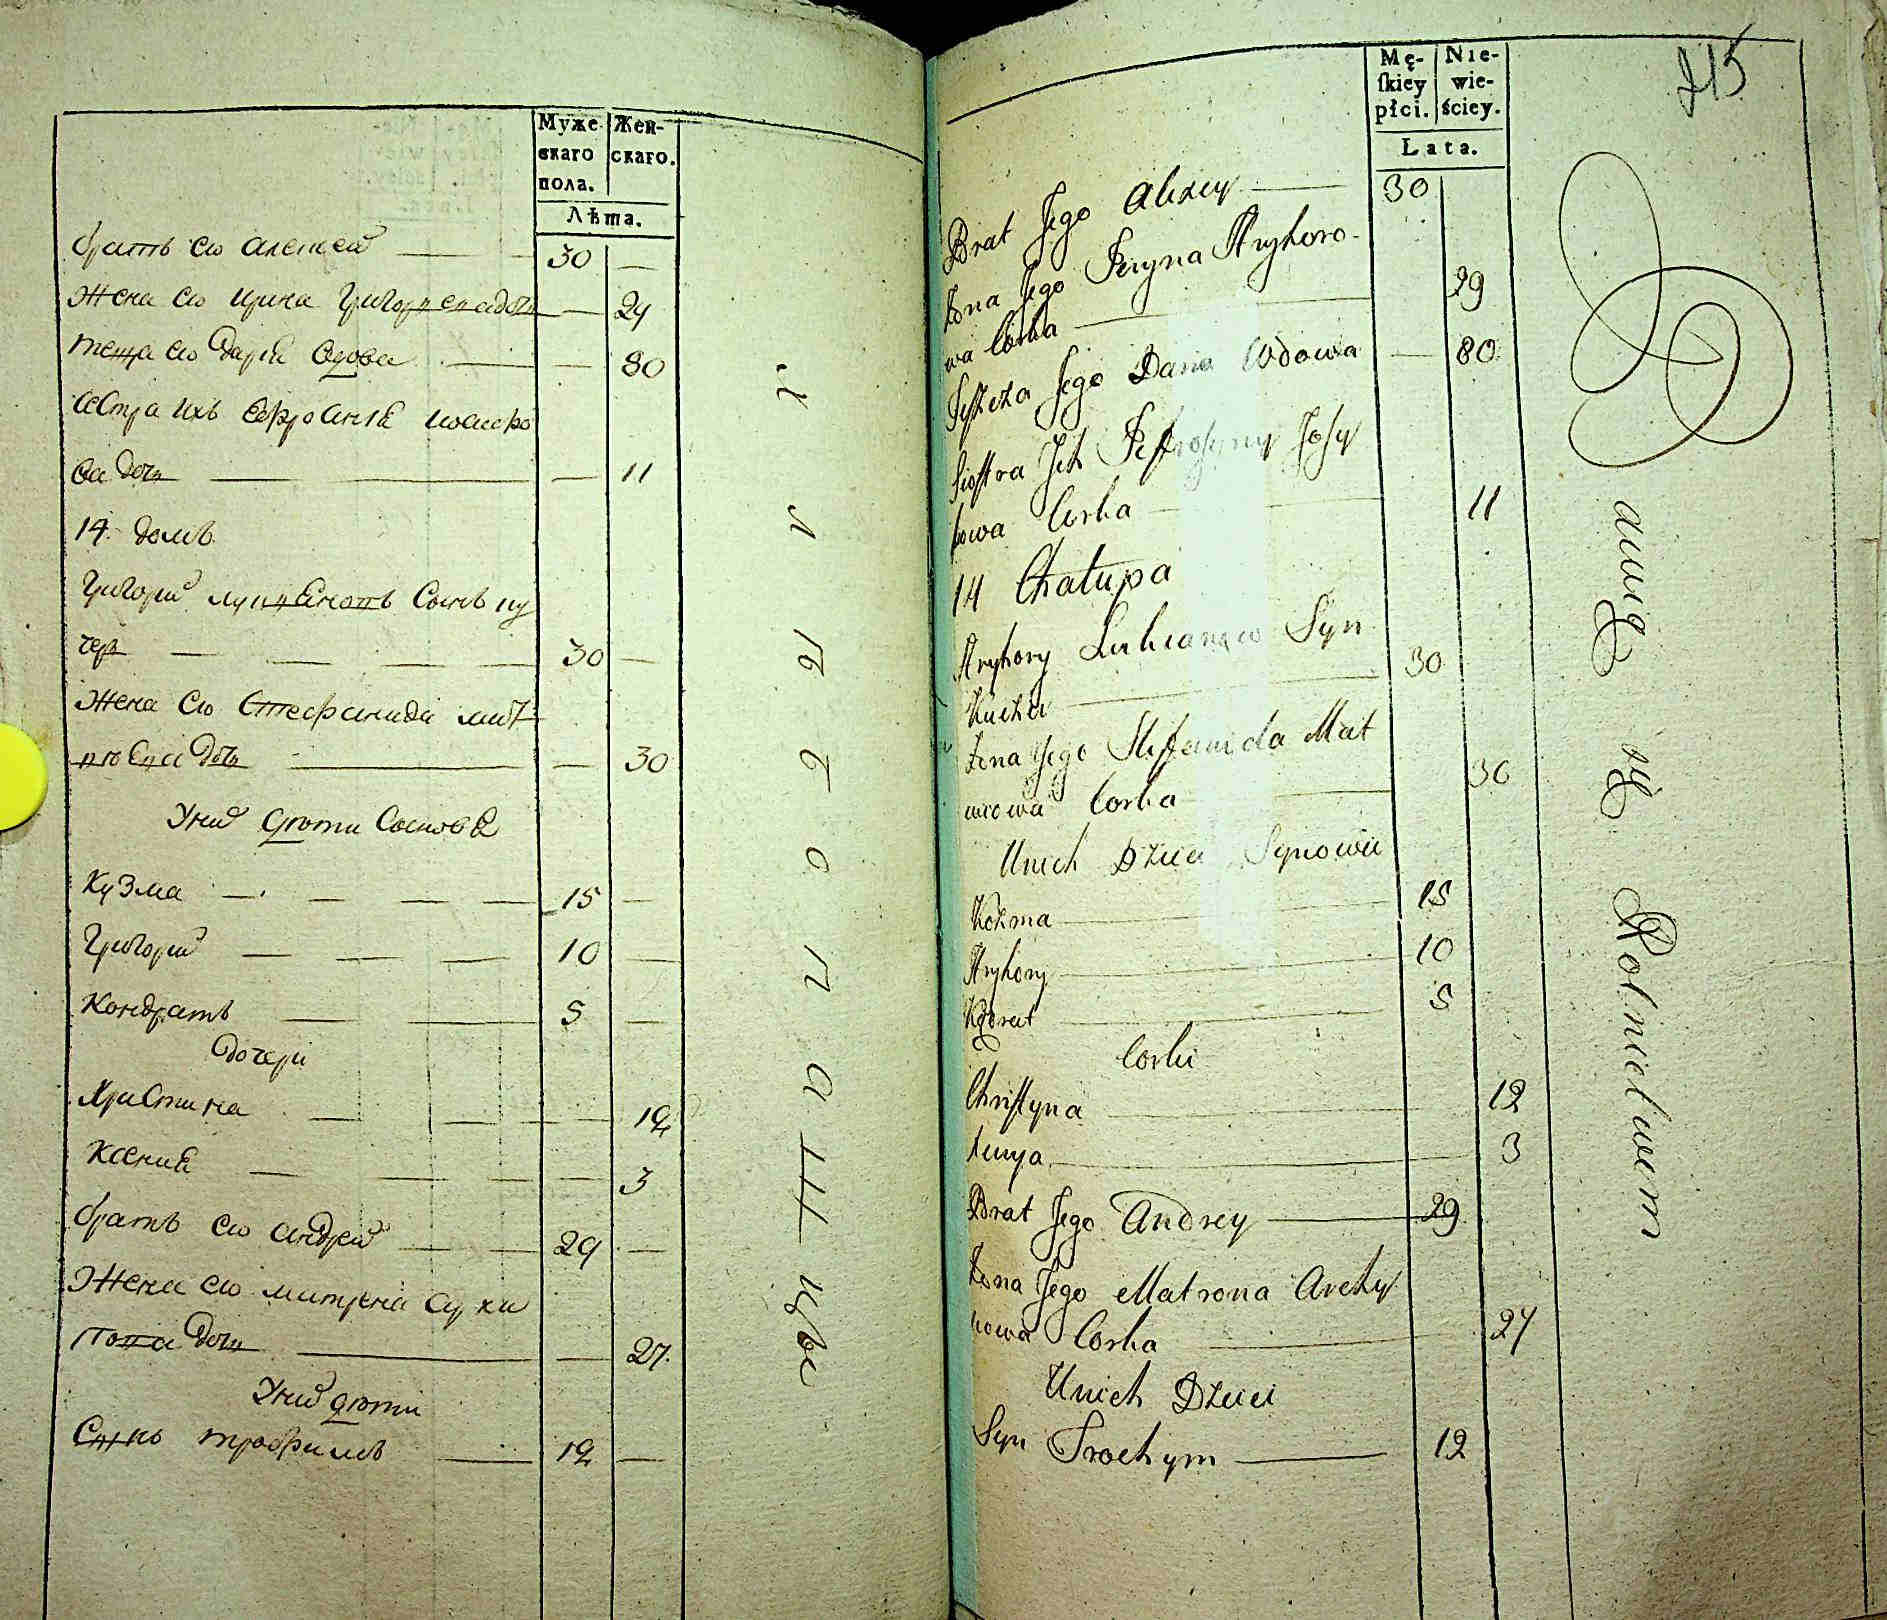 Муже
скаго
пола.
Жен-
скаго.
Лѣта.
братъ его алексей 30
жена его ирина григорьевадочь 29
теща его дарья вдова 80
сестра ихъ Евфросинья иосифо
ва дочь 11
14 домъ
Григорей лукьяновъ Сынъ ку
черь 30
жена его Стефанида мат
вѣева дочь 30
Унихъ дѣти Сыновья
Кузма 15
Григорей 10
Кондратъ 5
дочери
Христина 12
Ксения 3
братъ его андрей 29
жена его матрена архи
пова дочь 27
Унихъ дѣти
Сынъ трофимъ 12
хлѣбопашцы
Mę-
ſkiey
płci.
Nie-
wie-
ściey.
Lata.
215
Brat Jego Alexey 30
Żona Jego Jryna Hryhoro-
wa Corka 29
Teszcza Jego Daria Wdowa 80
Siostra Jch Jefrosyny Josy
fowa Corka 11
14 Chałupa
Hryhory Lukianow Syn
Kuchar 30
Żona Jego Stefanida Mat
wiowa Corka 30
Unich Dzieci Synowie
Kozma 15
Hryhory 10
Kodrat 5
Corki
Christyna 12
Xenya 3
Brat Jego Andrey 29
Żona Jego Matrona Archy
powa Corka 27
Unich Dzieci
Syn Trochym 12
Bawią się Rolnictwem